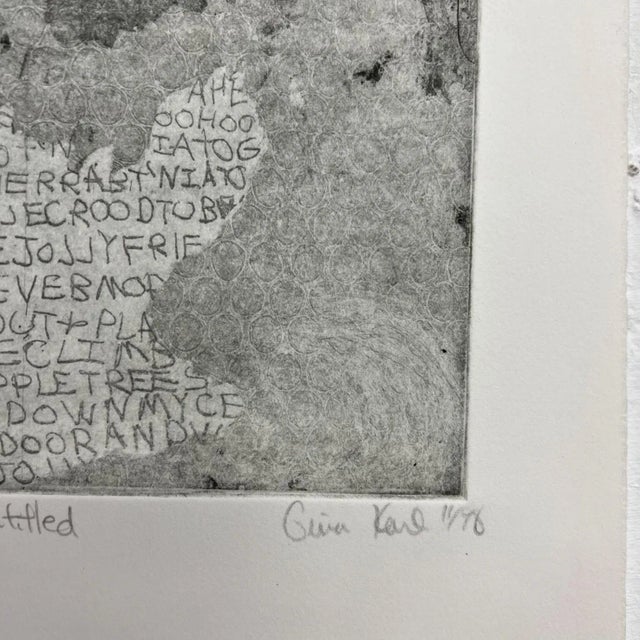 AHE
OOHOO
IATOG
ERRABTNIATO
ECROODTOB
EJOLLYFRIE
EVERMOR
OUT+PLA
ECLIMB
PPLETREES
DOWNMYCE
DOORANDW
Gina Karl 11/78